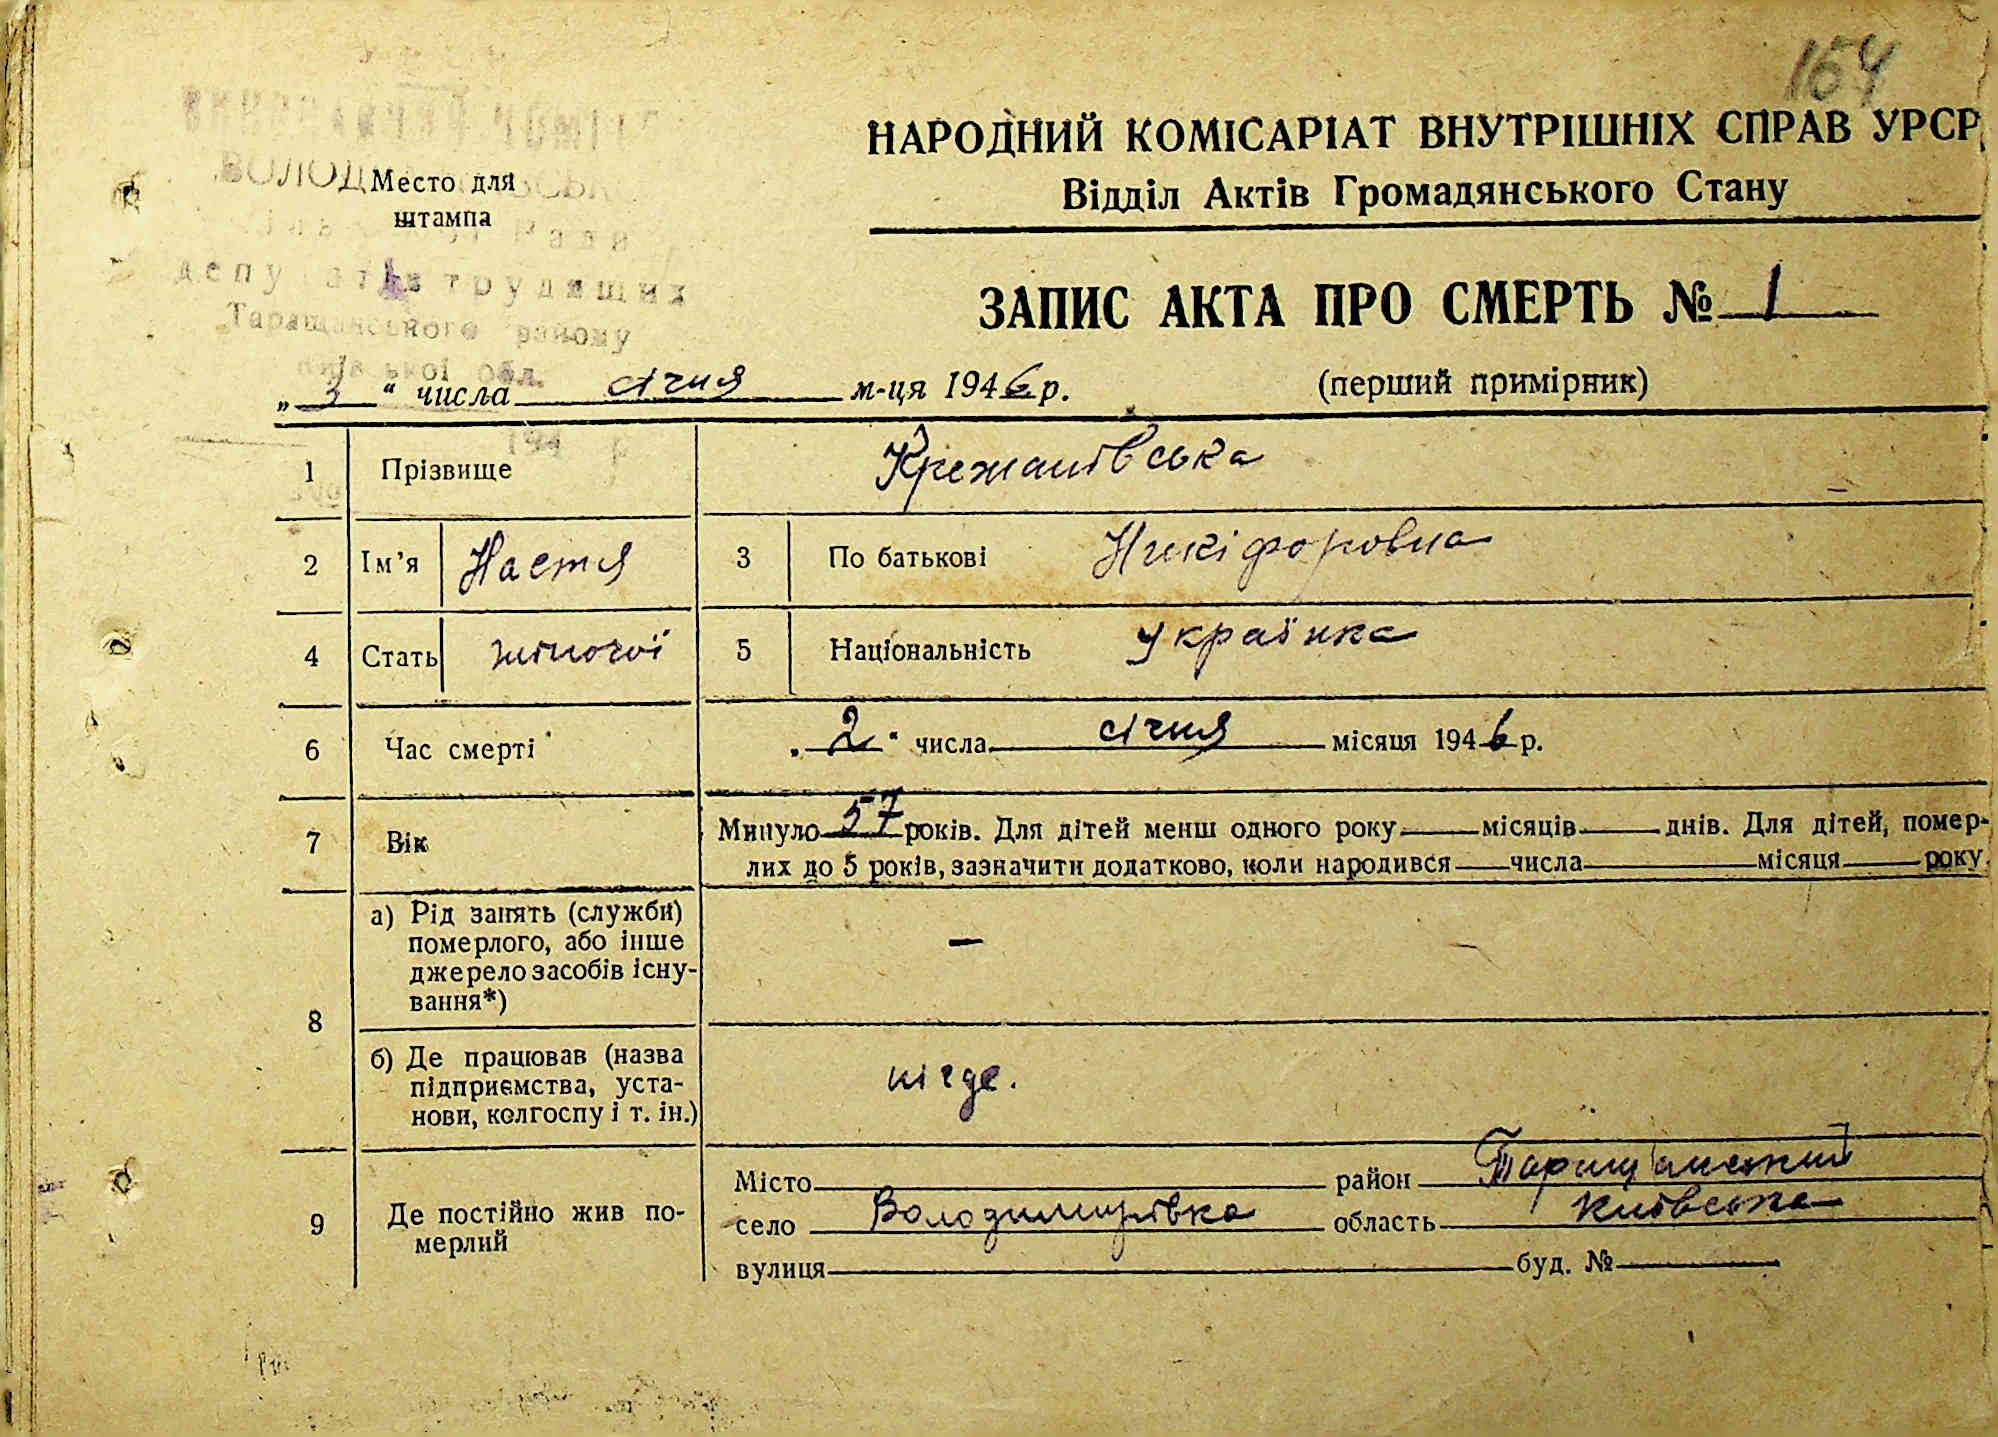 154
НАРОДНИЙ КОМІСАРІАТ ВНУТРІШНІХ СПРАВ УРСР
Відділ Актів Громадянського Стану
Место для
штампа
депутатів трудящих
Таращанського району
обл.
ЗАПИС АКТА ПРО СМЕРТЬ № 1
„ 3 “ числа січня м-ця 1946 р.
(перший примірник)
1 Прізвище Крежанівська
2 Ім’я Настя 3 По батькові Никіфоровна
4 Стать жіночої 5 Національність Українка
6 Час смерті „ 2 “ числа січня місяця 1946 р.
7 Вік Минуло 57 років. Для дітей менш одного року місяців днів. Для дітей, помер-
лих до 5 років, зазначити додатково, коли народився числа місяця року
8 а) Рід занять (служби)
померлого, або інше
джерело засобів існу-
вання*)
—
б) Де працював (назва
підприємства, уста-
нови, колгоспу і т. ін.)
нігде.
9 Де постійно жив по-
мерлий
Місто район Таращанський
село Володимирівка область Київська
вулиця буд. №